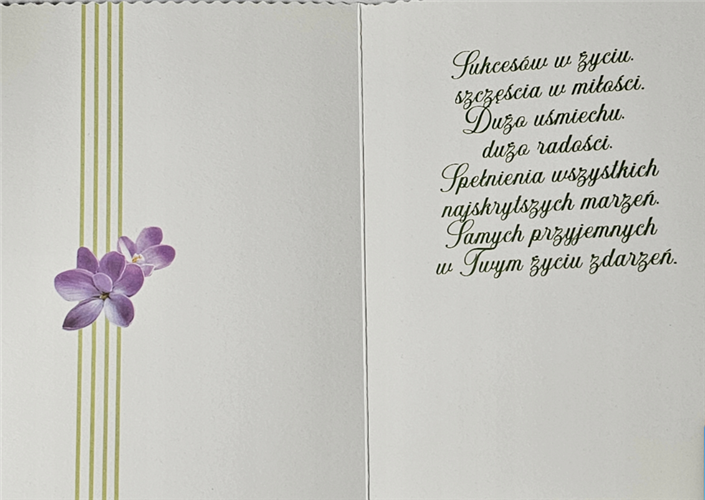 Sukcesów w życiu.
szczęścia w miłości.
Dużo uśmiechu.
dużo radości.
Spełnienia wszystkich
najskrytszych marzeń.
Samych przyjemnych
w Twym życiu zdarzeń.